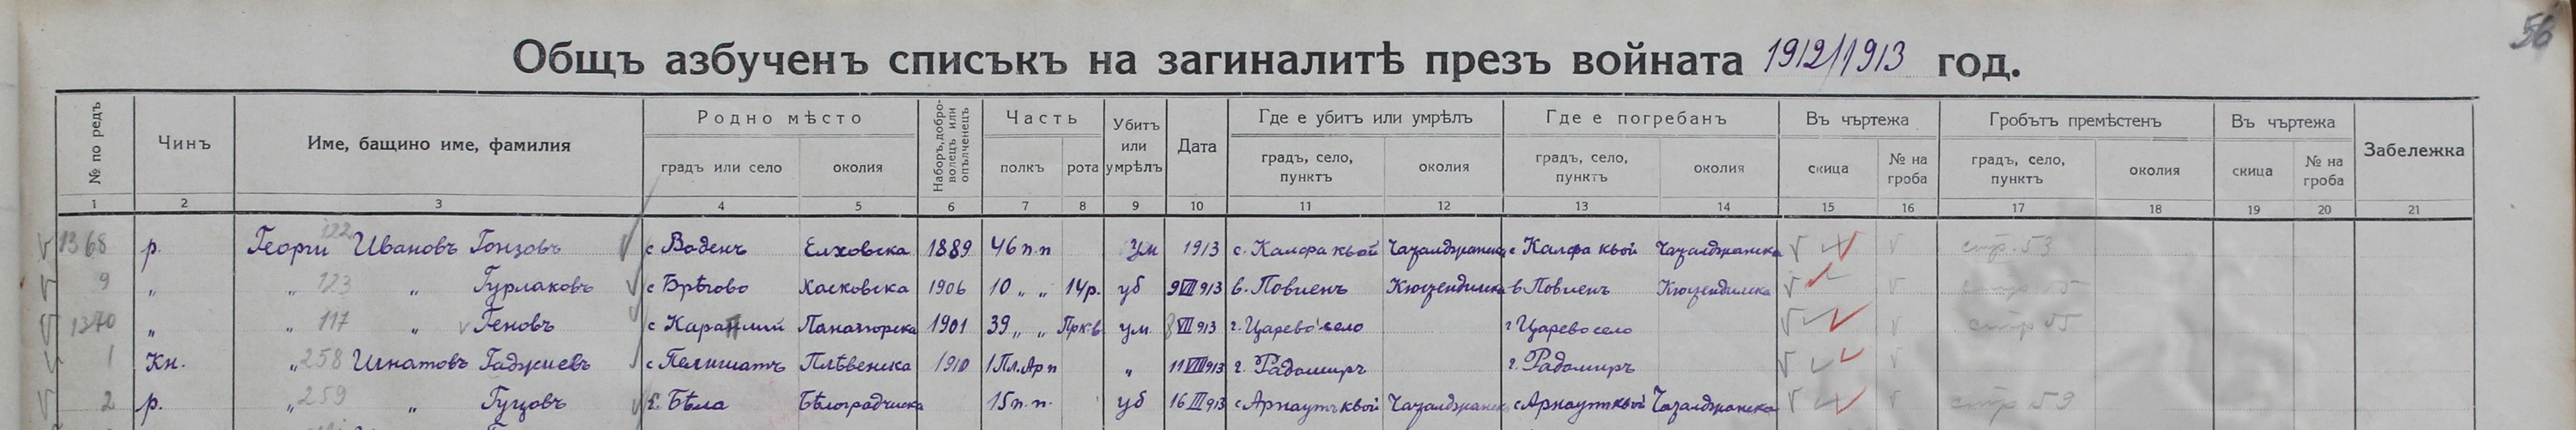 56
Общъ азбученъ списъкъ на загиналитѣ презъ войната 1912/1913 год.
№ по редъ Чинъ Име, бащино име, фамилия Родно мѣсто Наборъ, добро-волецъ или опълченецъ Часть Убитъ или умрѣлъ Дата Где е убитъ или умрѣлъ Где е погребанъ Въ чъртежа Гробътъ премѣстенъ Въ чъртежа Забележка
градъ или село околия полкъ рота градъ, село, пунктъ околия градъ, село, пунктъ околия скица № на гроба градъ, село, пунктъ околия скица № на гроба
1 2 3 4 5 6 7 8 9 10 11 12 13 14 15 16 17 18 19 20 21
1368 р. Георги 122 Ивановъ Гонзовъ с Воденъ Елховска 1889 46 п. п Ум 1913 с. Калфа кьой Чаталджанска с Калфа кьой Чаталджанска стр. 53
9 „ „ 123 „ Гурлаковъ с Брѣгово Хасковска 1906 10 „ „ 14р. уб 9 VII 913 в. Повиенъ Кюстендилска в Повиенъ Кюстендилска стр 55
1370 „ „ 117 „ Геновъ с Панагюрска 1901 39 „ „ ум. 8 VII 913 г. Царево село г Царево село стр 55
1 Кн. „ 258 Игнатовъ Гаджиевъ с Пелишатъ Плѣвенска 1910 1 Пл. Ар п „ 11 VIII 913 г. Радомиръ г. Радомиръ
2 р. „ 259 „ Гуцовъ с. Бѣла Бѣлоградчиска 15 п. п. уб 16 III 913 с Арнаутъ кьой Чаталджанска с Арнауткьой Чаталджанска стр 59